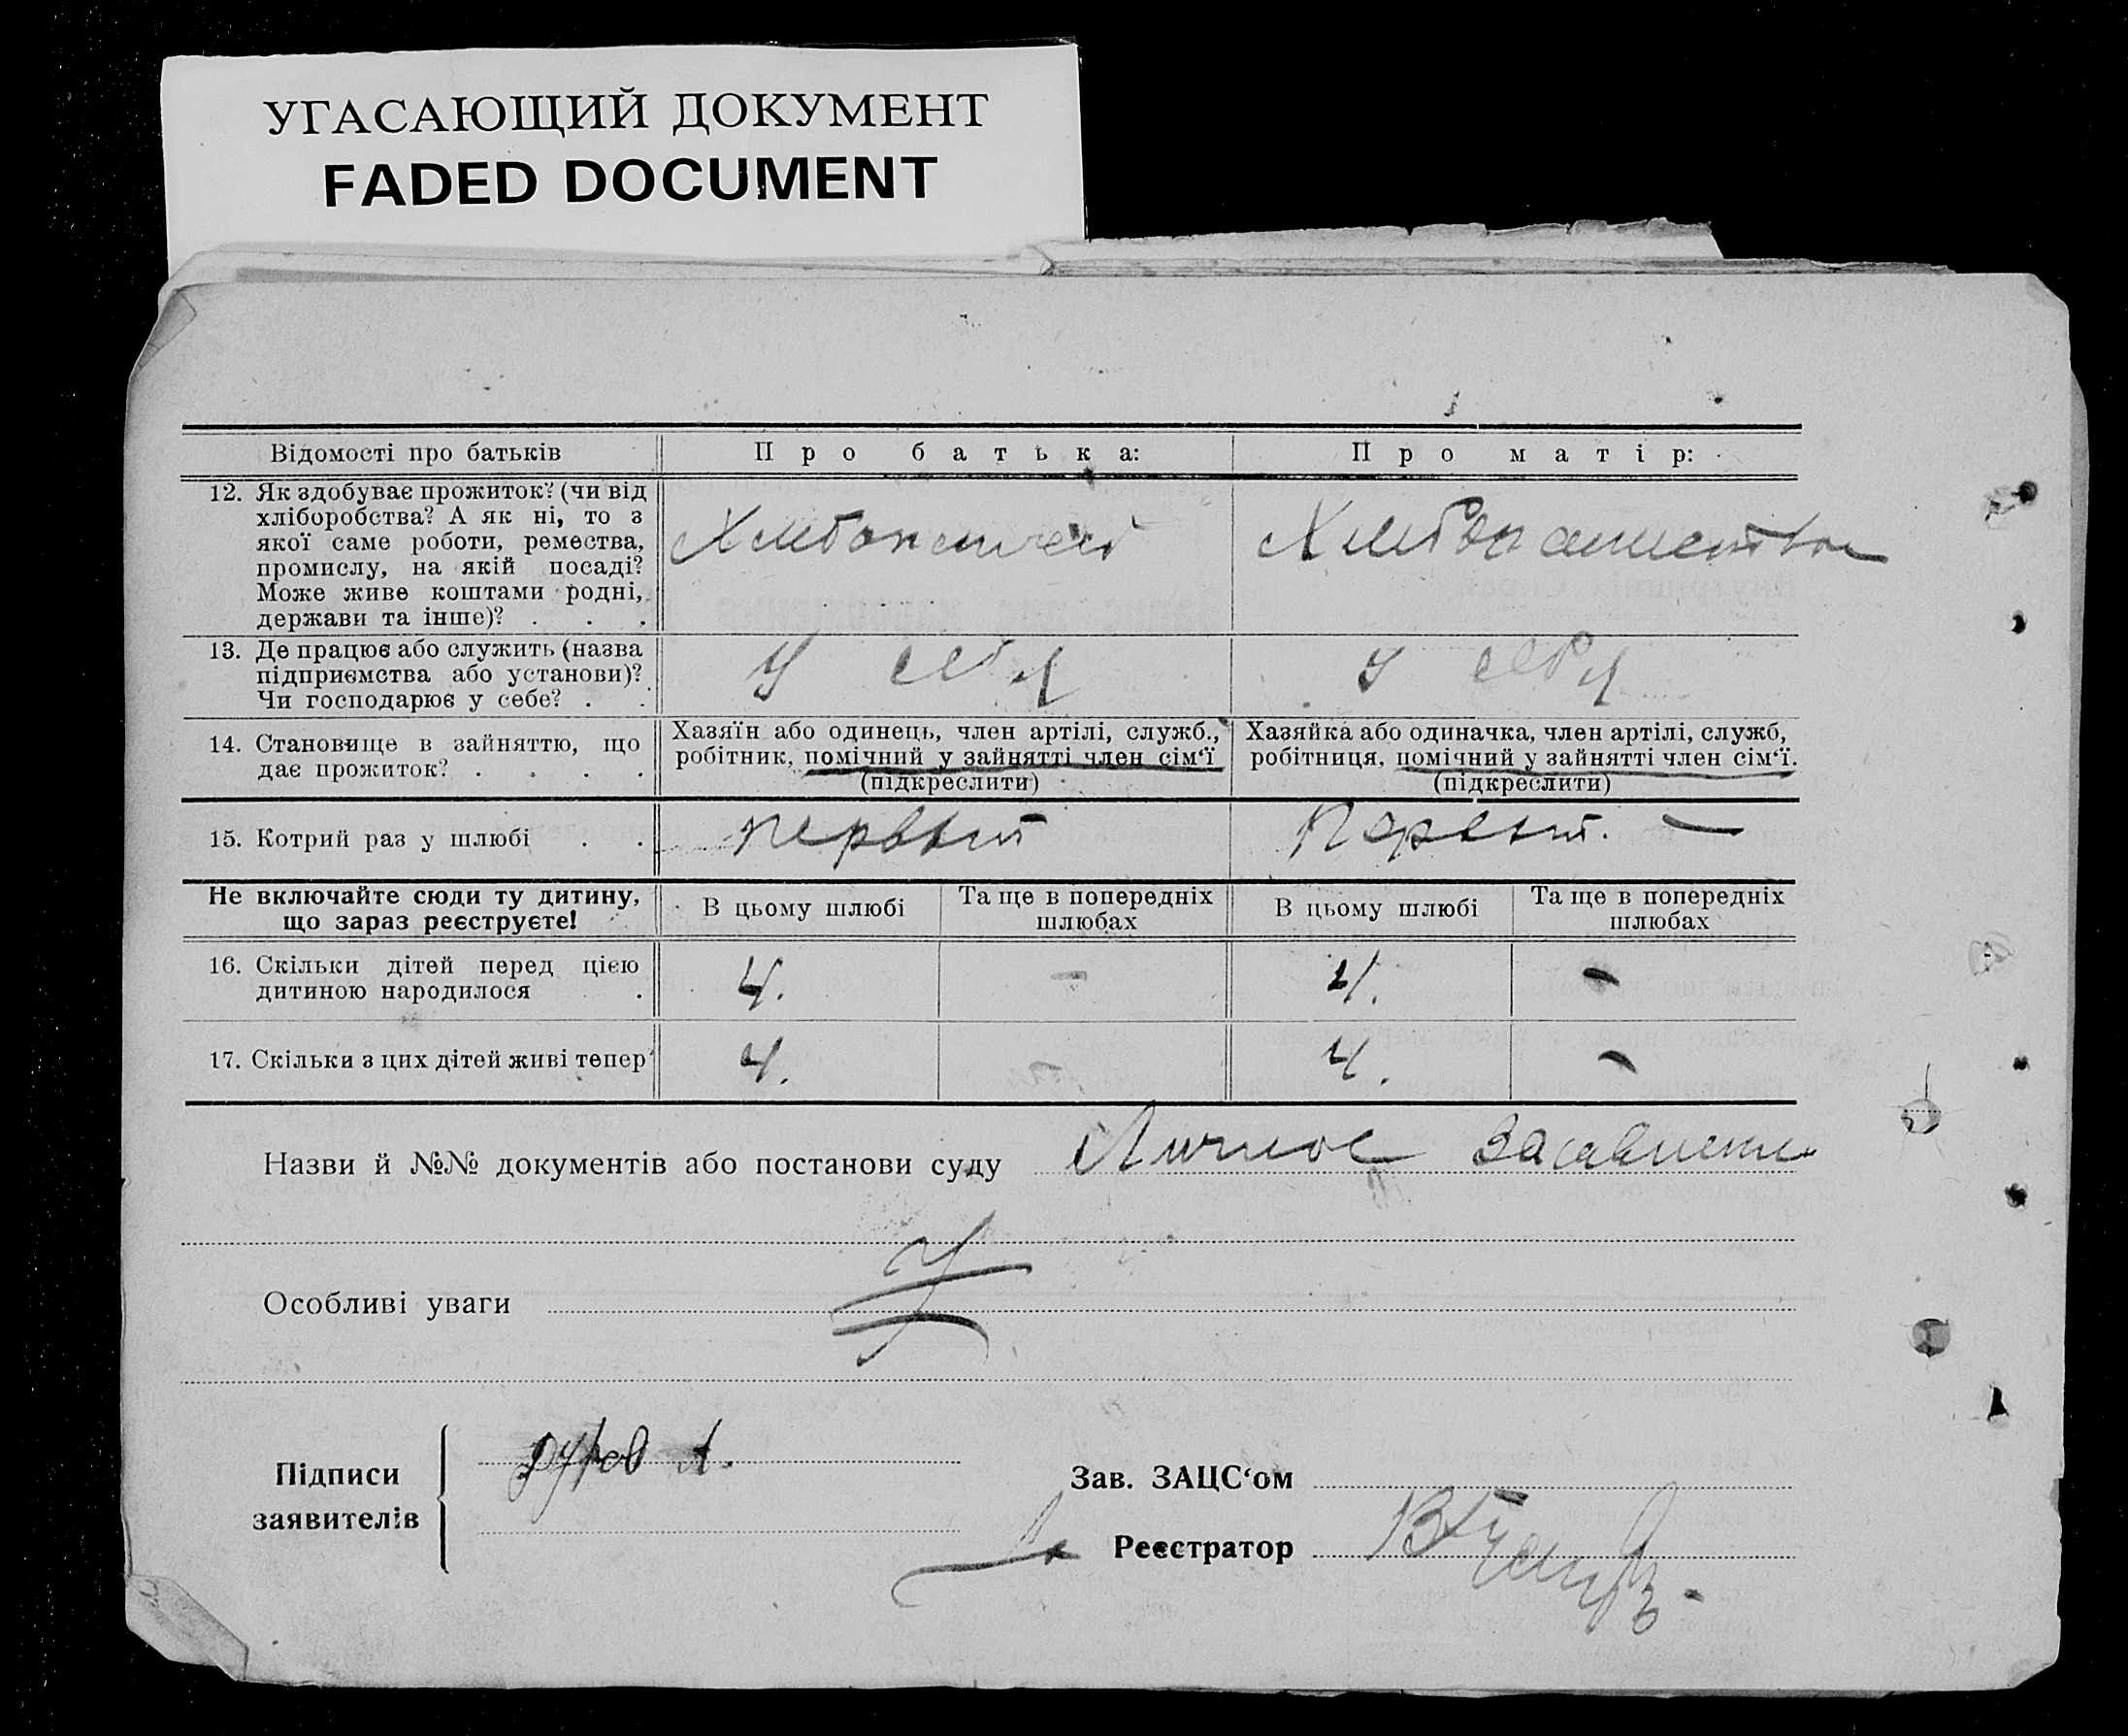 УГАСАЮЩИЙ ДОКУМЕНТ
FADED DOCUMENT
Відомості про батьків
Про батька:
Про матір:
12. Як здобуває прожиток? (чи від
хліборобства? А як ні, то з
якої саме роботи, ремества,
промислу, на якій посаді?
Може живе коштами родні,
держави та інше)? . . .
13. Де працює або служить (назва
підприємства або установи)?
Чи господарює у себе? . .
У себя
У себя
14. Становище в зайняттю, що
дає прожиток? . . . .
Хазяїн або одинець, член артілі, служб.,
робітник, помічний у зайнятті член сім‘ї
(підкреслити)
Хазяйка або одиначка, член артілі, служб,
робітниця, помічний у зайнятті член сім‘ї.
(підкреслити)
15. Котрий раз у шлюбі . .
первый
Первый. —
Не включайте сюди ту дитину,
що зараз реєструєте!
В цьому шлюбі
Та ще в попередніх
шлюбах
В цьому шлюбі
Та ще в попередніх
шлюбах
16. Скільки дітей перед цією
дитиною народилося .
4.
-
4.
-
17. Скільки з цих дітей живі тепер
4.
-
4.
-
Назви й №№ документів або постанови суду Личное
Особливі уваги
Підписи
заявителів
А.
Зав. ЗАЦС‘ом
Реєстратор